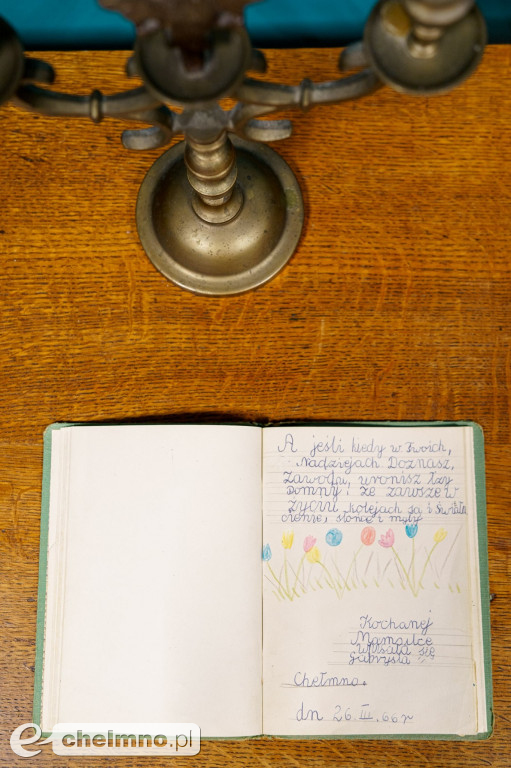 A jeśli kiedy w Twoich,
Nadziejach Doznasz,
Zawodu, uronisz łzy
pomnij że zawsze w
życiu kolejach są i światła
cienie, słońce i mgły
Kochanej
Mamusice
wpisała się
Gabrysia
Chełmno.
dn 26.III.66r
e-chelmno.pl